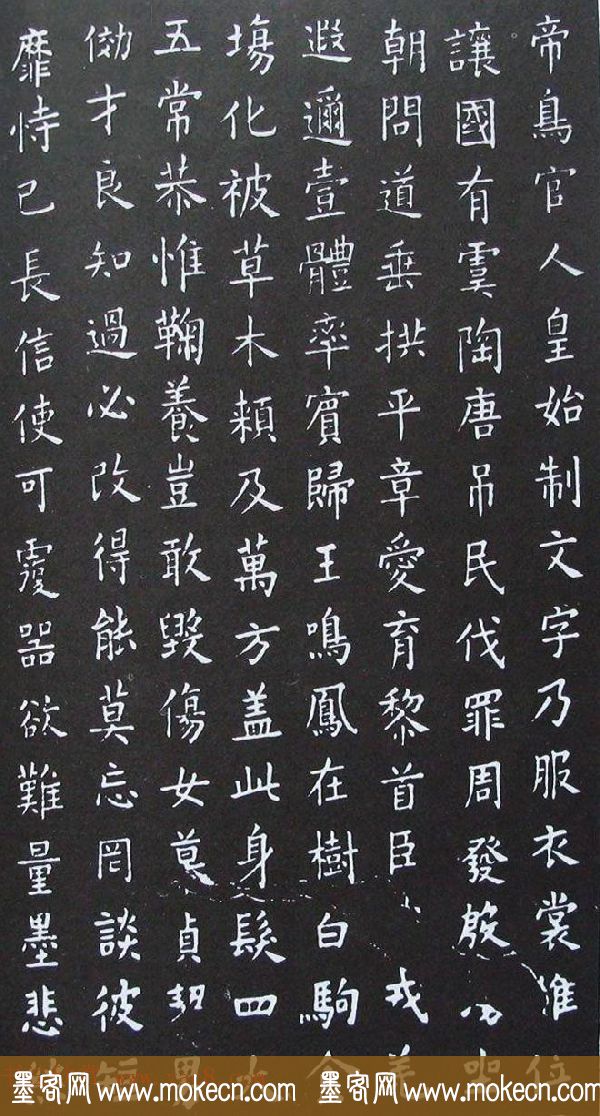 帝鳥官人皇始制文字乃服衣裳推位
讓國有虞陶唐吊民伐罪周發殷
朝問道垂拱平章愛育黎首臣戎羌
遐邇壹體率賓歸王鳴鳳在樹白駒食
塲化被草木賴及萬方盖此身髮四大
五常恭惟鞠養豈敢毀傷女莫貞男
効才良知過必改得能莫忘罔談彼短
靡恃己長信使可覆器欲難量墨悲
墨客网 www.mokecn.com 墨客网 www.mokecn.com